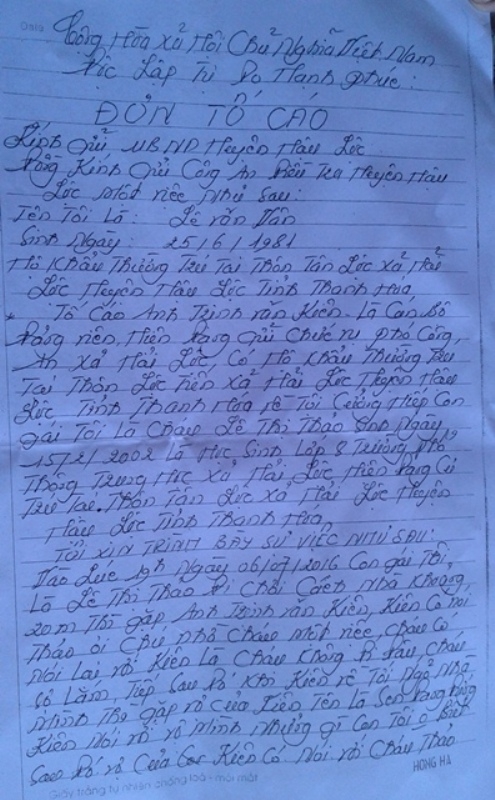 Cộng Hòa Xã Hội Chủ Nghĩa Việt Nam
Độc Lập Tự Do Hạnh Phúc:
ĐƠN TỐ CÁO
Kính Gửi UBND Huyện Hậu Lộc
Đồng Kính Gửi Công An Điều Tra Huyện Hậu
Lộc Một Việc Như Sau:
Tên Tôi Là: Lê Văn
Sinh Ngày: 25/6/1981
Hộ Khẩu Thường Trú Tại Thôn Tân Lộc Xã Hải
Lộc Huyện Hậu Lộc Tỉnh Thanh Hóa
Tố Cáo Anh Trịnh Văn Kiên - Là Cán Bộ
Đảng viên, Hiện Đang Giữ Chức Vụ Phó Công
An Xã Hải Lộc, Có Hộ Khẩu Thường Trú
Tại Thôn Lộc Tiên Xã Hải Lộc Huyện Hậu
Lộc Tỉnh Thanh Hóa Về Tội Cưỡng Hiếp Con
gái Tôi Là Cháu Lê Thị Thảo Sinh Ngày
15/2/2002 Là Học Sinh Lớp 8 Trường Phổ
Thông Trung Học Xã Hải Lộc, Hiện Đang Cư
Trú Tại Thôn Tân Lộc Xã Hải Lộc Huyện
Hậu Lộc Tỉnh Thanh Hóa,
TÔI XIN TRÌNH BÀY SỰ VIỆC NHƯ SAU:
Vào Lúc 19h Ngày 06/07/2016 Con gái Tôi,
Là Lê Thị Thảo Đi Chơi Cách Nhà Khoảng
20m Thì gặp Anh Trịnh Văn Kiên, Kiên Có nói
Thảo ơi Chú nhờ Cháu Một việc, Cháu Có
Nói Lại với Kiên Là Cháu Không Đi đâu, Cháu
Sợ Lắm, Tiếp Sau Đó Khi Kiên Về Tới Ngõ Nhà
Mình Thì gặp vợ Của Kiên Tên là Sen đang
Kiên Nói với vợ Mình Những gì Con Tôi
Sau Đó vợ Của Kiên Có Nói với Cháu Thảo
HONG HA
Giấy trắng tự nhiên chống loá - mỏi mắt